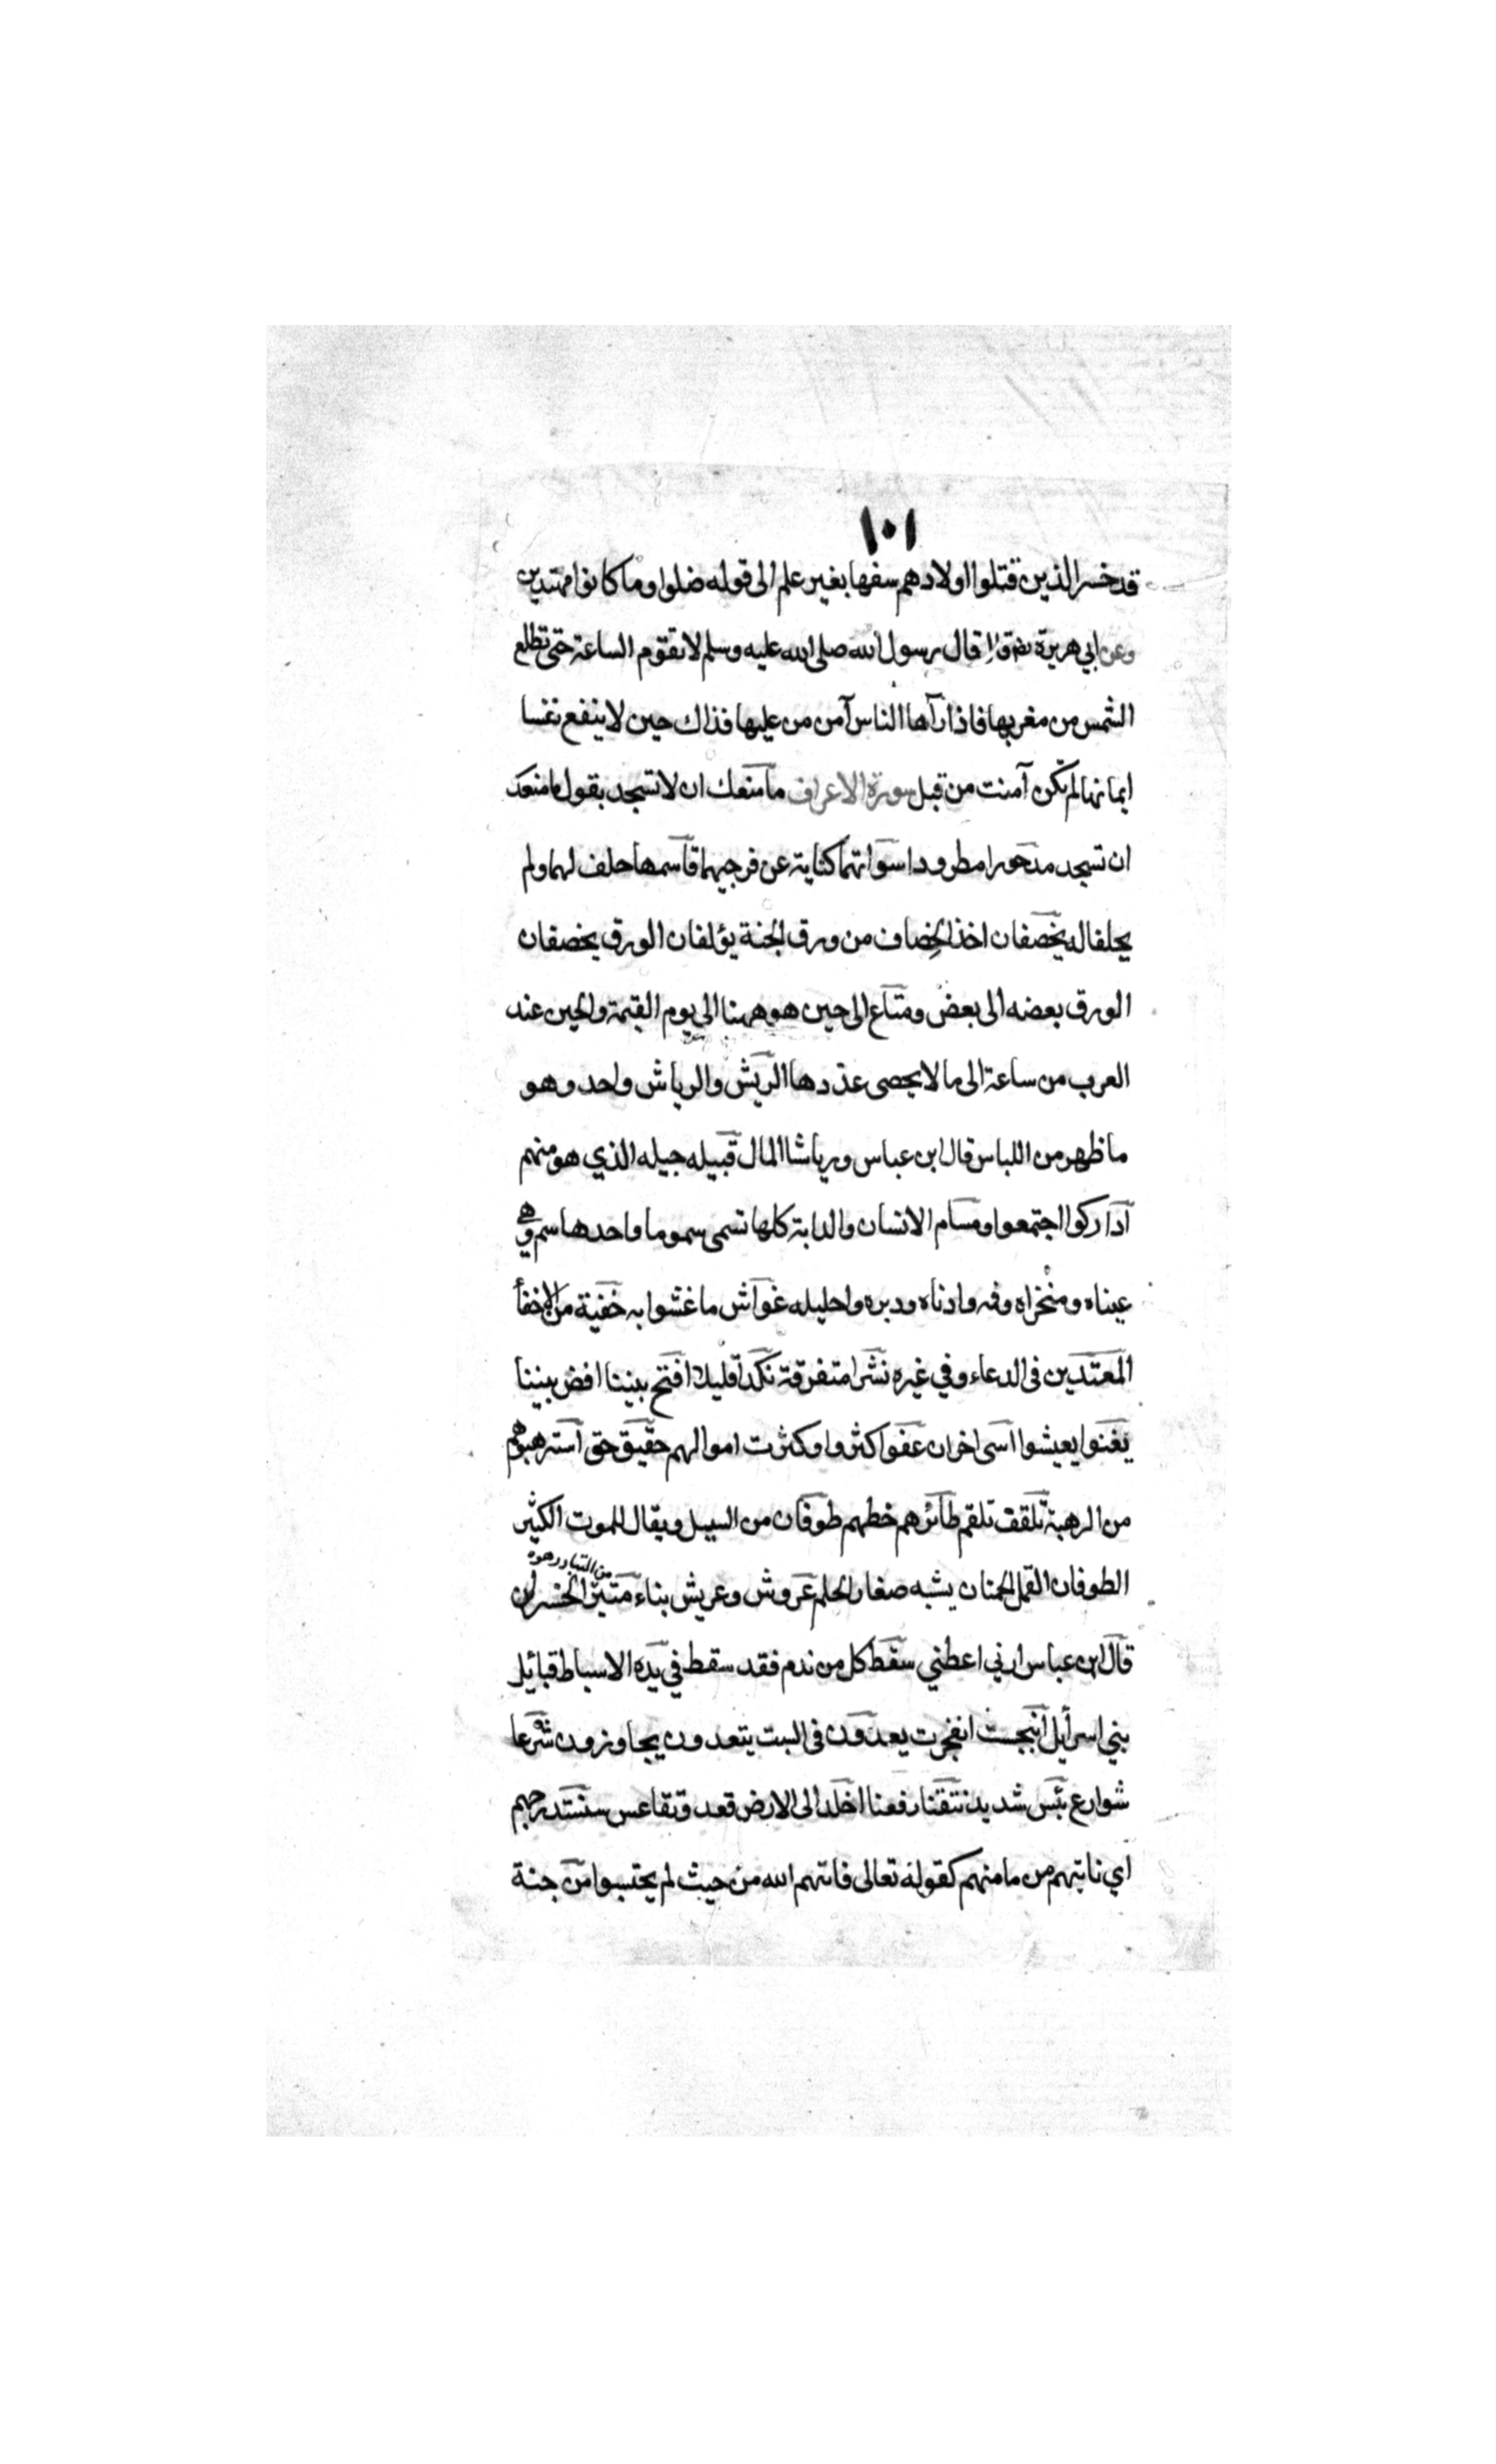 ١٠١
قد خسر الذين قتلوا اولادهم سفها بغير علم الى قوله ضلوا وما كانوا مهتدين
وعن ابي هريرة قال قال رسول الله صلى الله عليه وسلم لا تقوم الساعة حتى تطلع
الشمس من مغربها فاذا رآها الناس آمن من عليها فذاك حين لا ينفع نفسا
ايمانها لم تكن آمنت من قبل سورة الاعراف ما منعك ان لا تسجد يقول ما منعك
ان تسجد مدحورا مطرودا سواتهما كناية عن فرجيهما قاسمهما حلف لهما ولم
يحلفا له يخصفان اخذ الخصاف من ورق الجنة يؤلفان الورق يخصفان
الورق بعضه الى بعض ومتاع الى حين هو ههنا الى يوم القيمة والحين عند
العرب من ساعة الى ما لا يحصى عددها الريش والرياش واحد وهو
ما ظهر من اللباس قال ابن عباس ورياشا المال قبيله جيله الذي هو منهم
آداركوا اجتمعوا ومسام الانسان والدابة كلها تسمى سموما واحدها سم وهي
عيناه ومنخراه وفه واذناه ودبره واحليله غواش ما غشوا به خفية من الاخفأ
المعتدين فى الدعاء وفي غيره نشرا متفرقة نكدا قليلا افتح بيننا اقض بيننا
يغنوا يعيشوا اسى احزان عفوا كثروا وكثرت اموالهم حقيق حق استرهبوهم
من الرهبة تلقف تلقم طائرهم حظهم طوفان من السيل ويقال للموت الكثير
الطوفان القمل الحمنان يشبه صغار الحلم عروش وعريش بناء متبر الخسران
من التبار وهو
قال ابن عباس ارني اعطني سقط كل من ندم فقد سقط في يده الاسباط قبائل
بني اسرأيل انبجست انفجرت يعدون فى السبت يتعدون يجاوزون شرعا
شوارع بئس شديد نتقنا رفعنا اخلد الى الارض قعد وتقاعس سنستدرجهم
اي ناتيهم من مامنهم كقوله تعالى فاتهم الله من حيث لم يحتسبوا من جنة